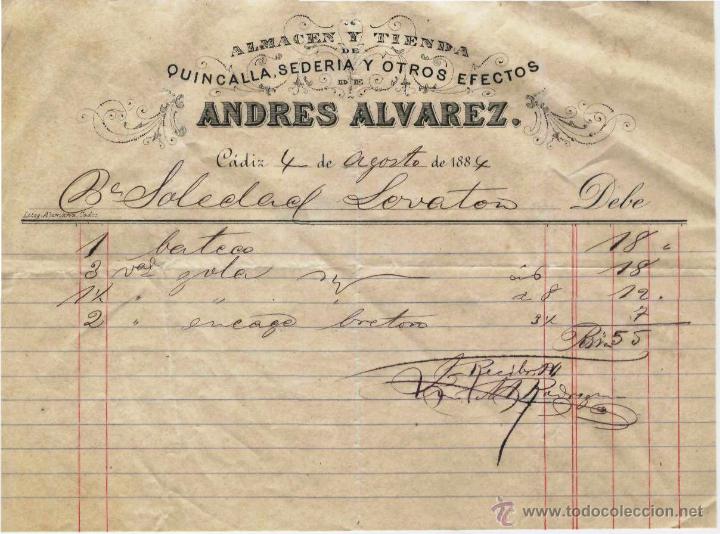 ALMACEN Y TIENDA
DE
QUINCALLA, SEDERIA Y OTROS EFECTOS
DE
ANDRES ALVAREZ.
Cádiz 4 de Agosto de 1884
Soledad Lovaton Debe
Litog. Alemana, Cadiz
1 18 "
3 vas gola á 6 18
1½ " " " á 8 12.
2 " encage breton 3½ 7
55
Recibí
todocoleccion
© www.todocoleccion.net